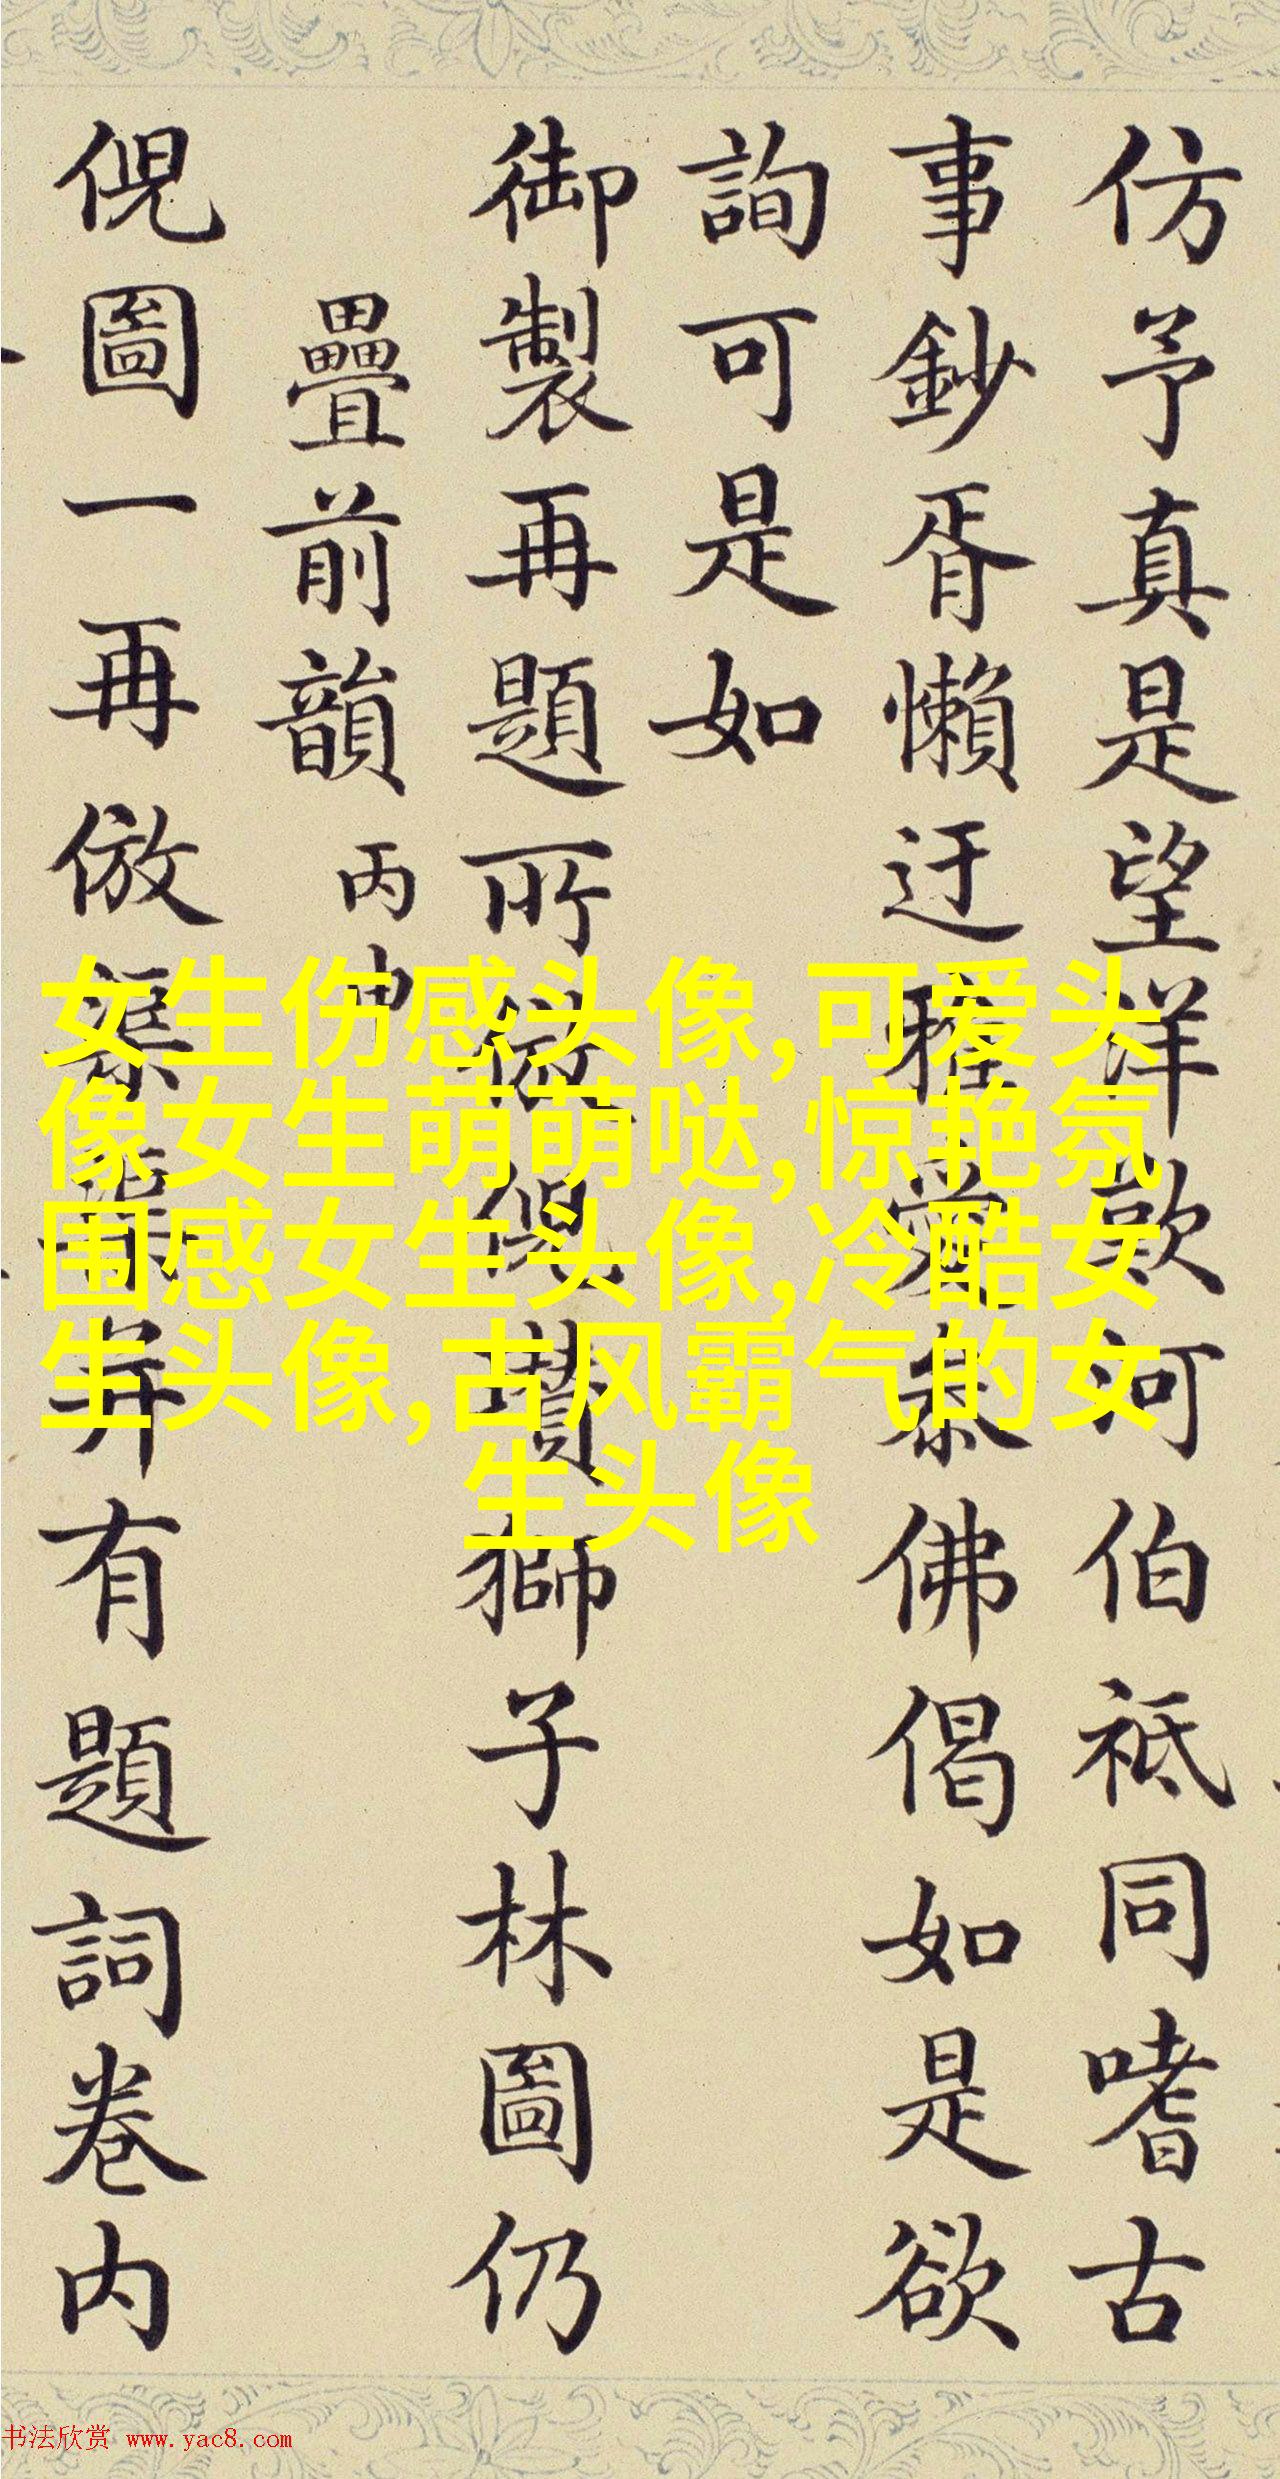 仿予真是望洋歎河伯祗同嗜古
事鈔胥懶迂雅愛參佛偈如是欲
詢可是如
御製再題所倣倪瓚獅子林圖仍
疊前韻丙申
倪圖一再倣渠渠并有題詞卷内
女生伤感头像,可爱头
像女生萌萌哒,惊艳氛
围感女生头像,冷酷女
生头像,古风霸气的女
生头像
书法欣赏 www.yac8.com